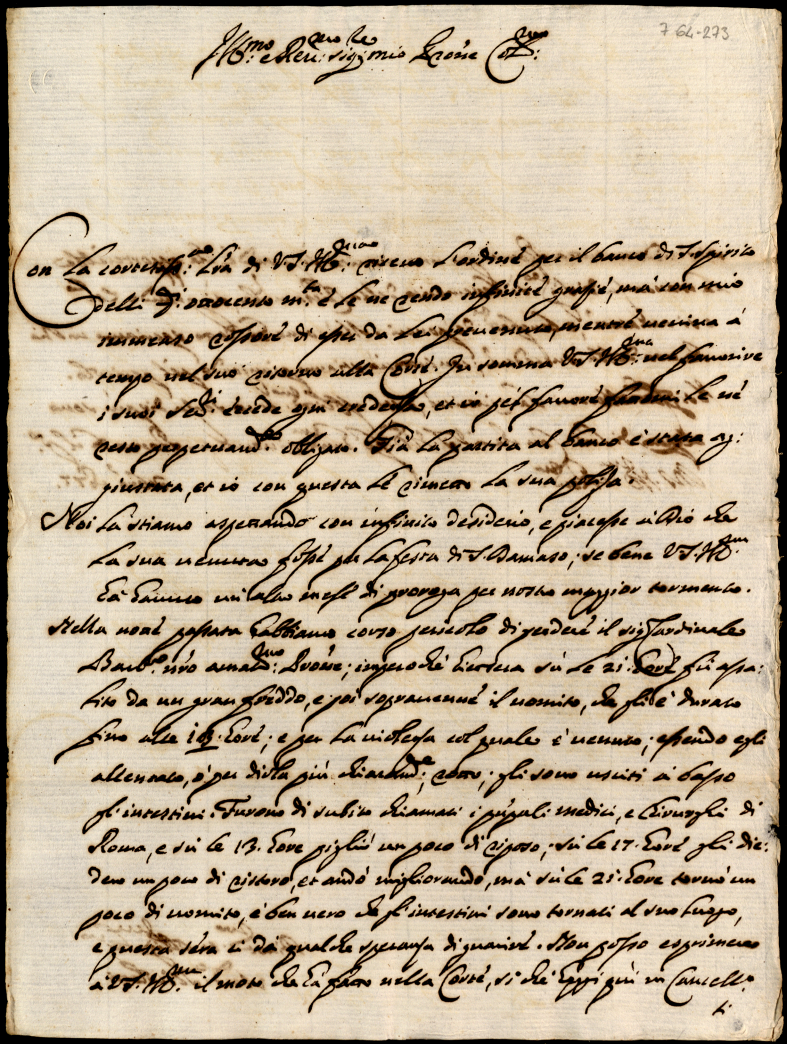 7 64-273
Ill:mo e Rev:mo sig:re mio Prone Col:mo
Con la cortesiss:ma l'ra di V.S. Ill:ma ricevo l'ordine per il banco di S. Spirito
delli ottocento m:ta e le ne rendo infinite grazie, mà con mio
immenso rossore di esser da lei prevenuto, mentre veniva à
tempo nel suo ritorno alla Corte. In somma V.S. Ill:ma nel favorire
i suoi Ser:ri eccede ogni credenza, et io p favore le ne
resto perpetuam:te obligato. Già la partita al banco è stata ag:
giustata, et io con questa le rimetto la sua poliza.
Noi la stiamo aspettando con infinito desiderio, e piacesse à Dio che
la sua venuta fosse per la festa di S. Damaso; se bene V.S. Ill:ma
hà havuto un altro mese di proroga per nostro maggior tormento.
Nella notte passata habbiamo corso pericolo di perdere il sig: Cardinale
Barb:no n'ro amatis:mo Prone; imperoche hiersera sù le 21. hore fù assa:
lito da un gran freddo, e poi sopravenne il vomito, che gli è durato
fino alle hore; e per la violenza col quale è venuto; essendo egli
allentato, ò per dirla più chiaram:te; rotto; gli sono usciti à basso
gl'intestini. Furono di subito chiamati i p'npali medici, e chirurghi di
Roma, e sù le 13. hore pigliò un poco di riposo; sù le 17. hore gli die:
dero un poco di ristoro, et andò migliorando, mà sù le 21. hore tornò un
poco di vomito, è ben vero che gl'intestini sono tornati al suo luogo,
e questa sera ci dà qualche speranza di guarire. Non posso esprimere
à V.S. Ill:ma il moto che hà fatto nella Corte, si che hoggi più in Cancell:a